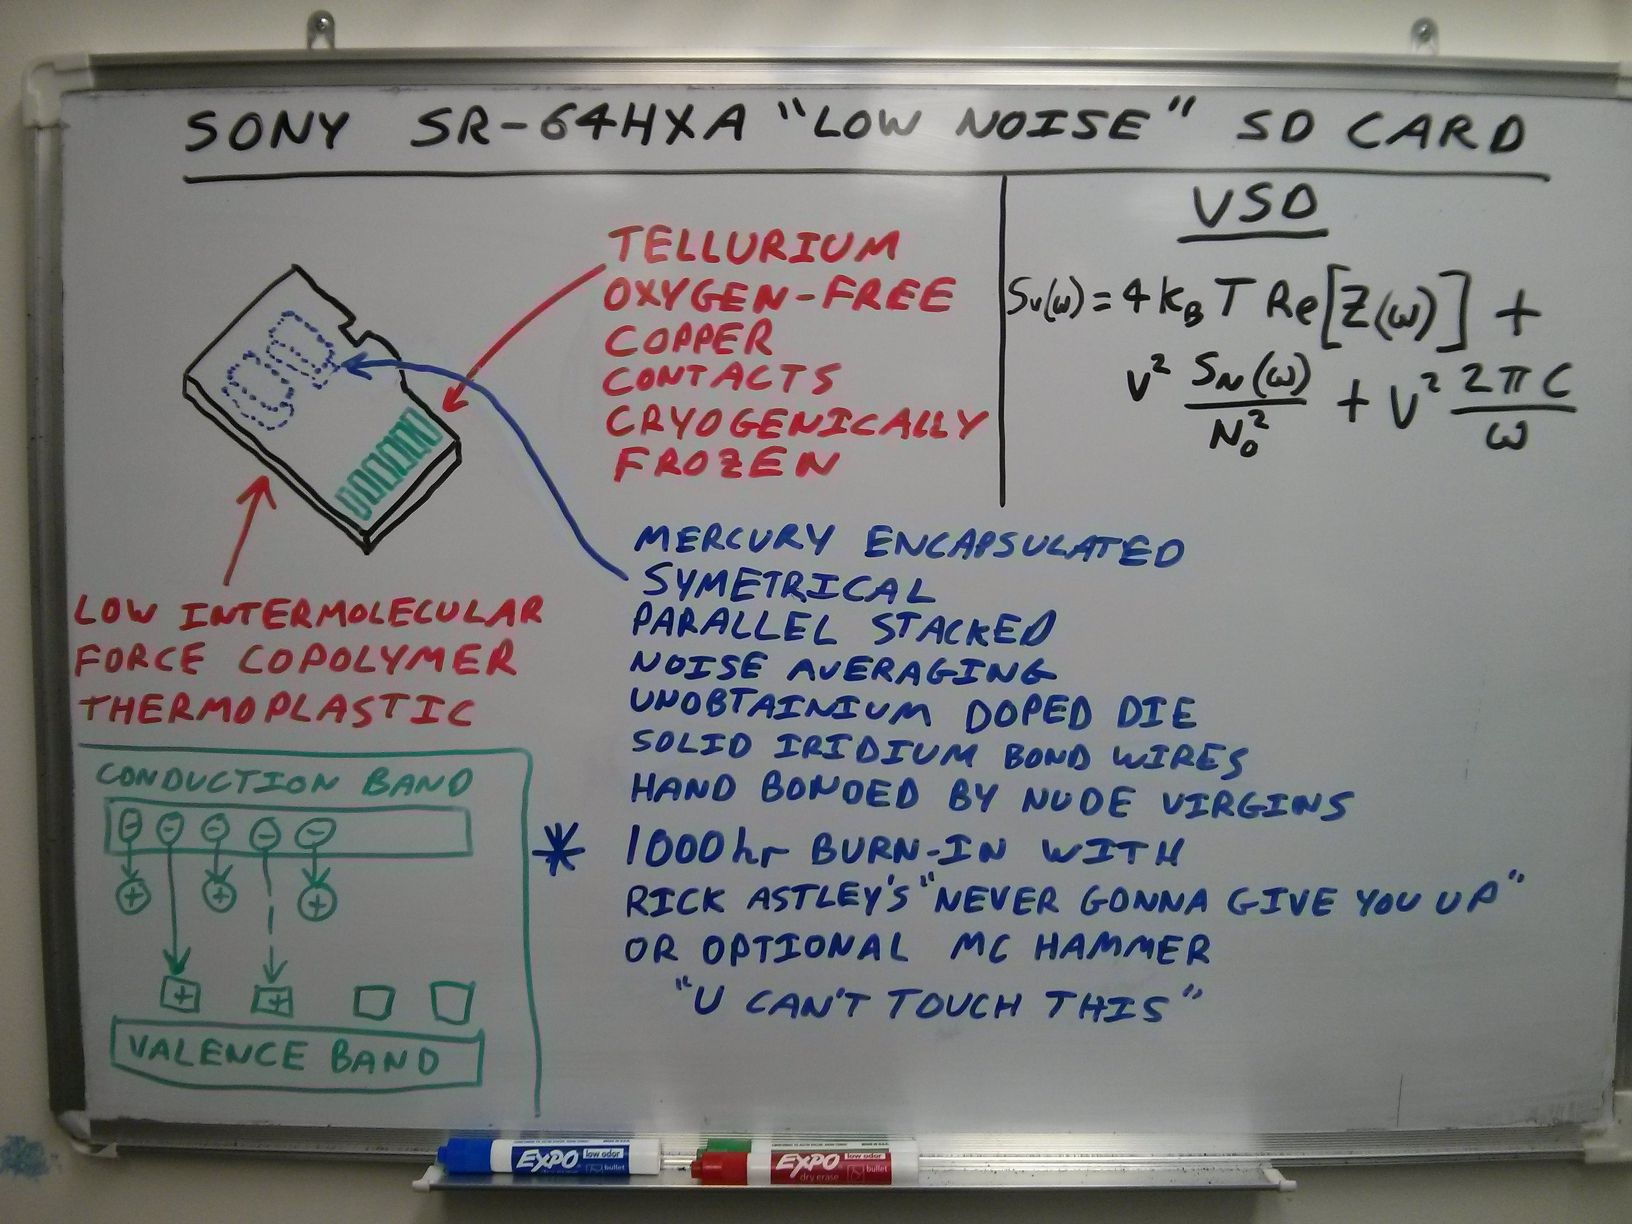 SONY SR-64HXA "LOW NOISE" SD CARD
VSD
Sv(ω) = 4 kB T Re[Z(ω)] +
V² SN(ω)/N0² + V² 2πC/ω
TELLURIUM
OXYGEN-FREE
COPPER
CONTACTS
CRYOGENICALLY
FROZEN
LOW INTERMOLECULAR
FORCE COPOLYMER
THERMOPLASTIC
MERCURY ENCAPSULATED
SYMETRICAL
PARALLEL STACKED
NOISE AVERAGING
UNOBTAINIUM DOPED DIE
SOLID IRIDIUM BOND WIRES
HAND BONDED BY NUDE VIRGINS
* 1000hr BURN-IN WITH
RICK ASTLEY'S "NEVER GONNA GIVE YOU UP"
OR OPTIONAL MC HAMMER
"U CAN'T TOUCH THIS"
CONDUCTION BAND
- - - - -
+ + +
+ +
VALENCE BAND
EXPO low odor bullet
EXPO low odor dry erase bullet